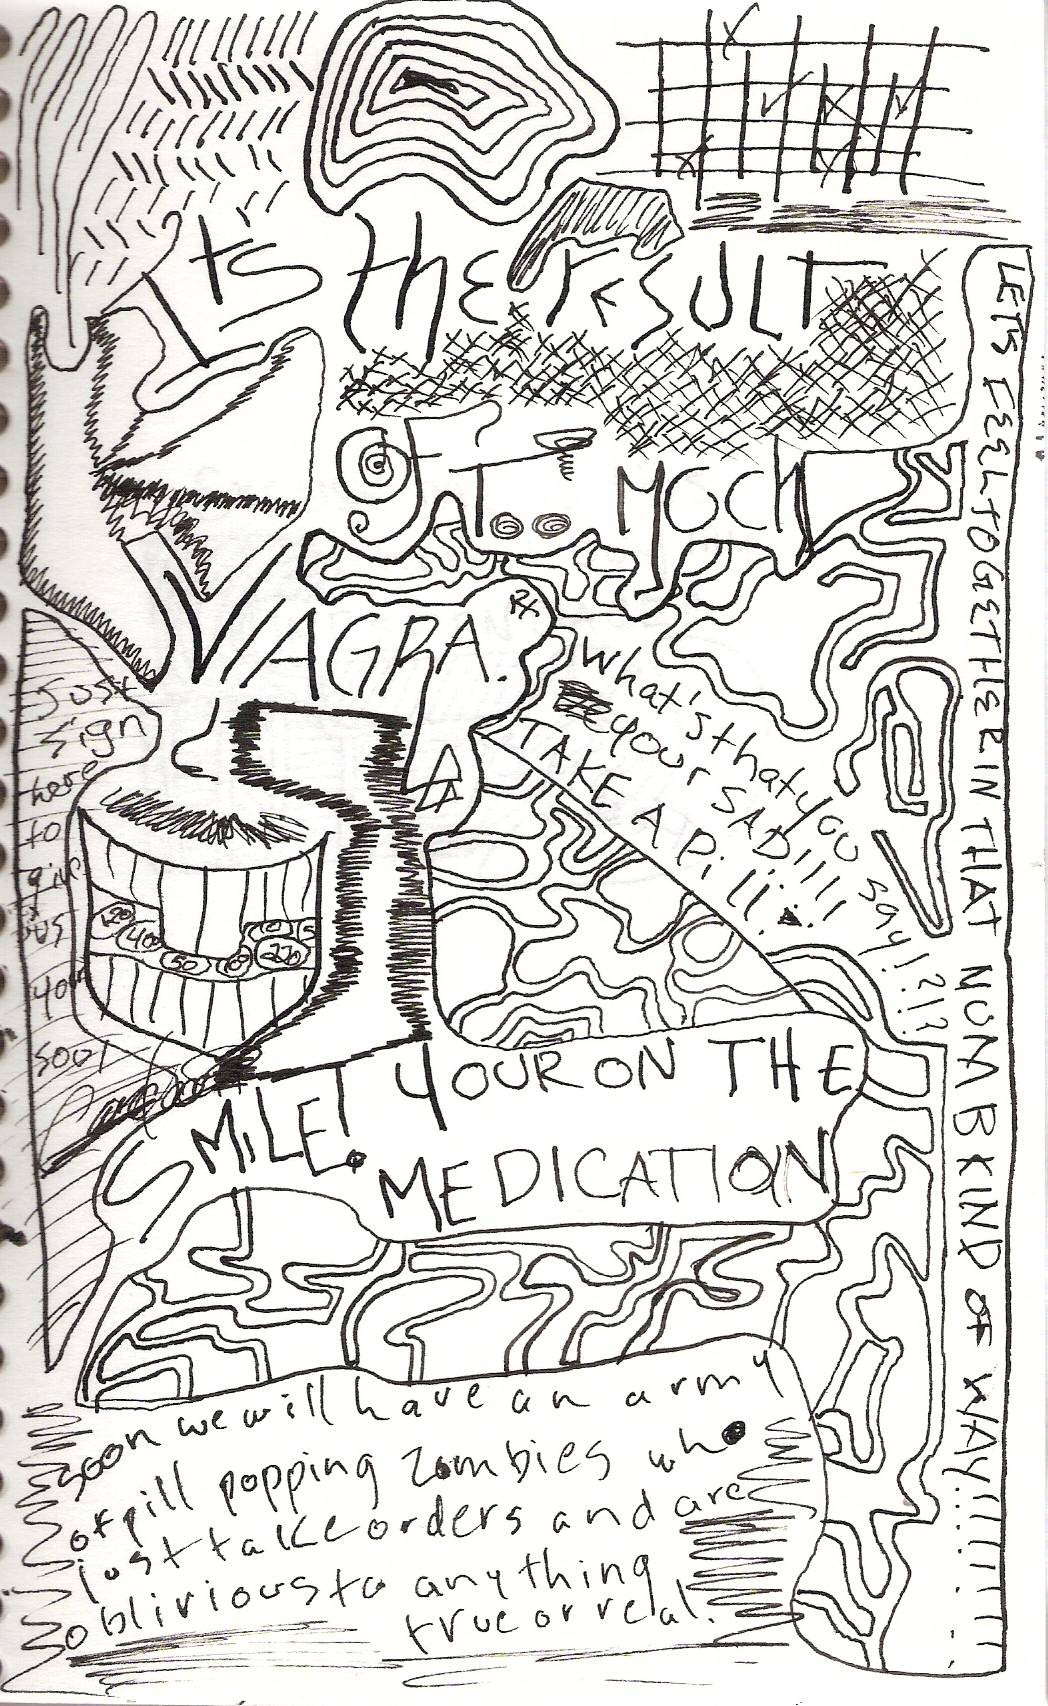 ITS the rESULT
OF To MUCH
VIAGRA.
Rx
what's that you say!?!?
your SAD!!!
TAKE A Pill!
LETS FEEL TOGETHER IN THAT NUMB KIND OF WAY!!!!!!!
Just
sign
here
to
give
us
your
soul
20
400
50
10
220
SMILE! YOUR ON THE
MEDICATION
soon we will have an army
of pill popping zombies who
just take orders and are
oblivious to anything
true or real.